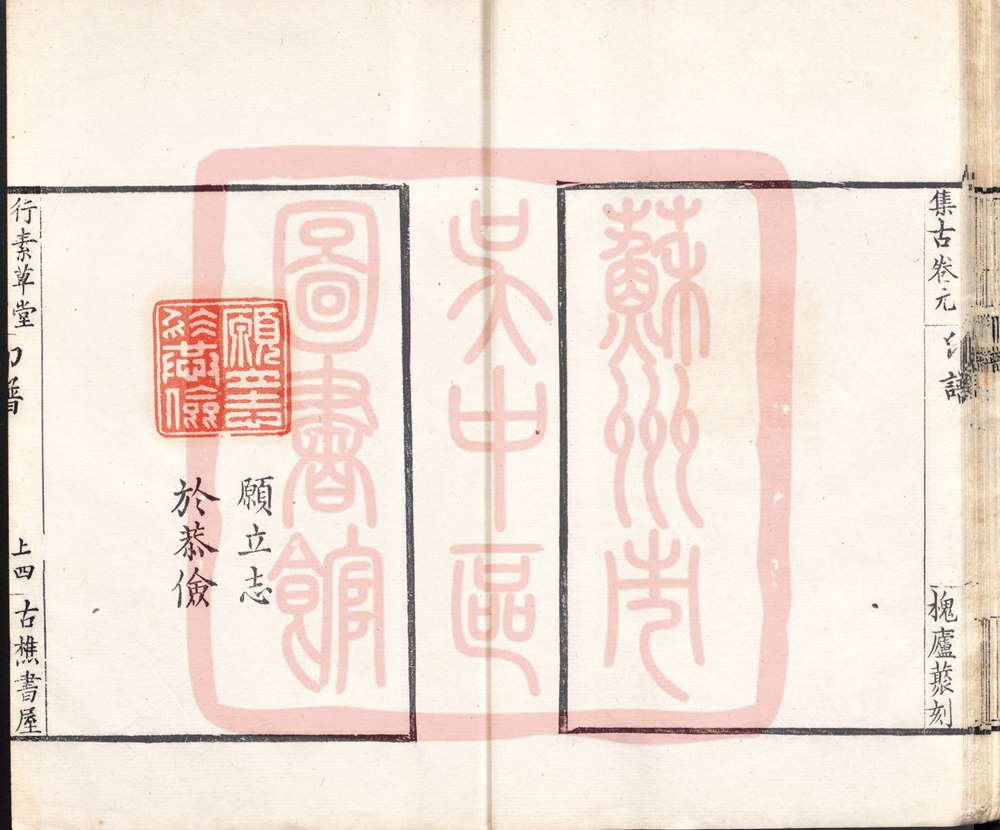 集古卷元
印譜
槐廬菉刻
蘇州市
吳中區
圖書館
願立志
於恭儉
願立志
於恭儉
行素草堂
印譜
上四
古樵書屋